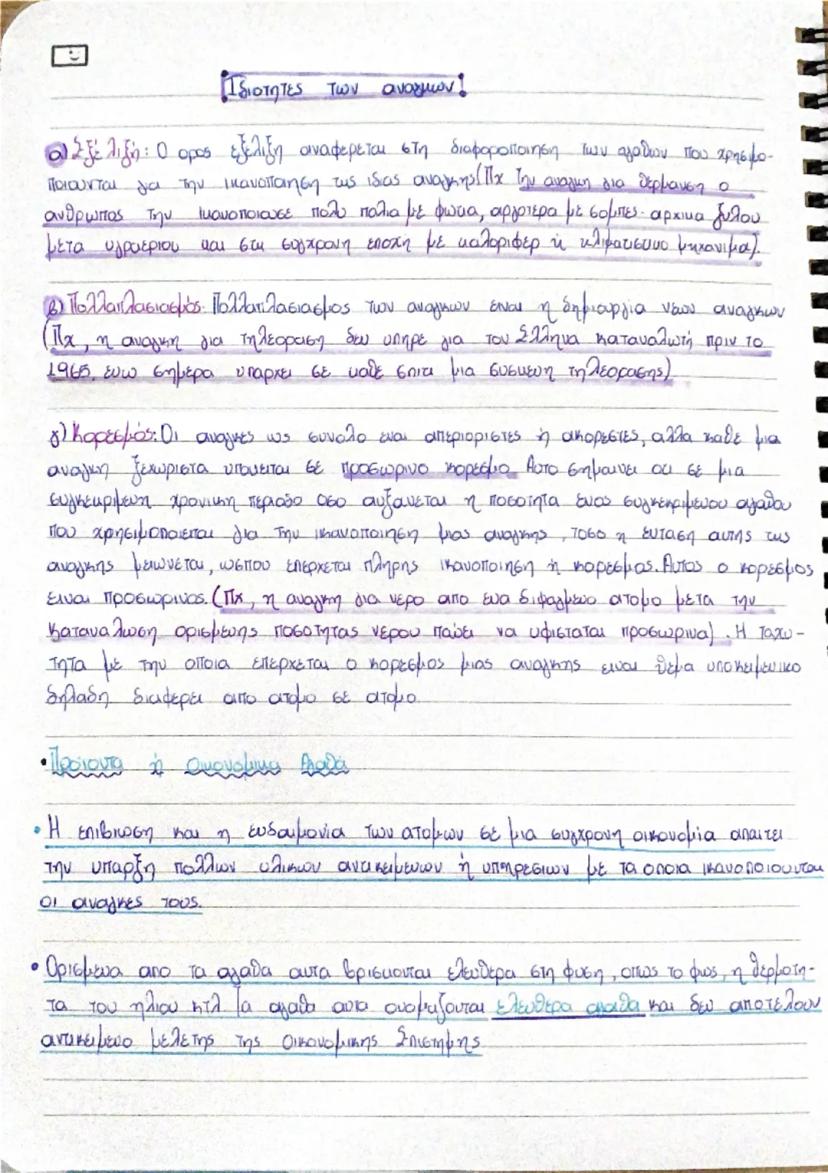 Ιδιοτητες των αναγκων!
α) Εξέλιξή: Ο ορος εξελιξη αναφερεται στη διαφοροποιηση των αγαθων που χρησιμο-
ποιουνται για την ικανοποιηση της ιδιας αναγκης(Πχ την αναγκη για θερμανση ο
ανθρωπος την ικανοποιουσε πολυ παλια με φωτια, αργοτερα με σομπες- αρχικα ξυλου
μετα υγραεριου και στη συγχρονη εποχη με καλοριφερ ή κλιματιστικο μηχανημα).
β) Πολλαπλασιασμός: Πολλαπλασιασμος των αναγκων ειναι η δημιουργια νεων αναγκων
(Πχ, η αναγκη για τηλεοραση δεν υπηρχε για τον Ελληνα καταναλωτή πριν το
1965, ενω σημερα υπαρχει σε καθε σπιτι μια συσκευη τηλεορασης)
γ) Κορεσμός: Οι αναγκες ως συνολο ειναι απεριοριστες ή ακορεστες, αλλα καθε μια
αναγκη ξεχωριστα υποκειται σε προσωρινο κορεσμο. Αυτο σημαινει οτι σε μια
συγκεκριμενη χρονικη περιοδο οσο αυξανεται η ποσοτητα ενος συγκεκριμενου αγαθου
που χρησιμοποιειται για την ικανοποιηση μιας αναγκης, τοσο η ενταση αυτης της
αναγκης μειωνεται, ωσπου επερχεται πληρης ικανοποιηση ή κορεσμος. Αυτος ο κορεσμος
ειναι προσωρινος. (Πχ, η αναγκη για νερο απο ενα διψασμενο ατομο μετα την
καταναλωση ορισμενης ποσοτητας νερου παυει να υφισταται προσωρινα). Η ταχυ-
τητα με την οποια επερχεται ο κορεσμος μιας αναγκης ειναι θεμα υποκειμενικο
δηλαδη διαφερει απο ατομο σε ατομο.
• Προιοντα ή Οικονομικα Αγαθά
• Η επιβιωση και η ευδαιμονία των ατομων σε μια συγχρονη οικονομια απαιτει
την υπαρξη πολλων υλικων αντικειμενων ή υπηρεσιων με τα οποια ικανοποιουνται
οι αναγκες τους.
• Ορισμενα απο τα αγαθα αυτα βρισκονται ελευθερα στη φυση, οπως το φως, η θερμοτη-
τα του ηλιου κτλ Τα αγαθα αυτα ονομαζονται ελευθερα αγαθα και δεν αποτελουν
αντικειμενο μελετης της Οικονομικης Επιστημης